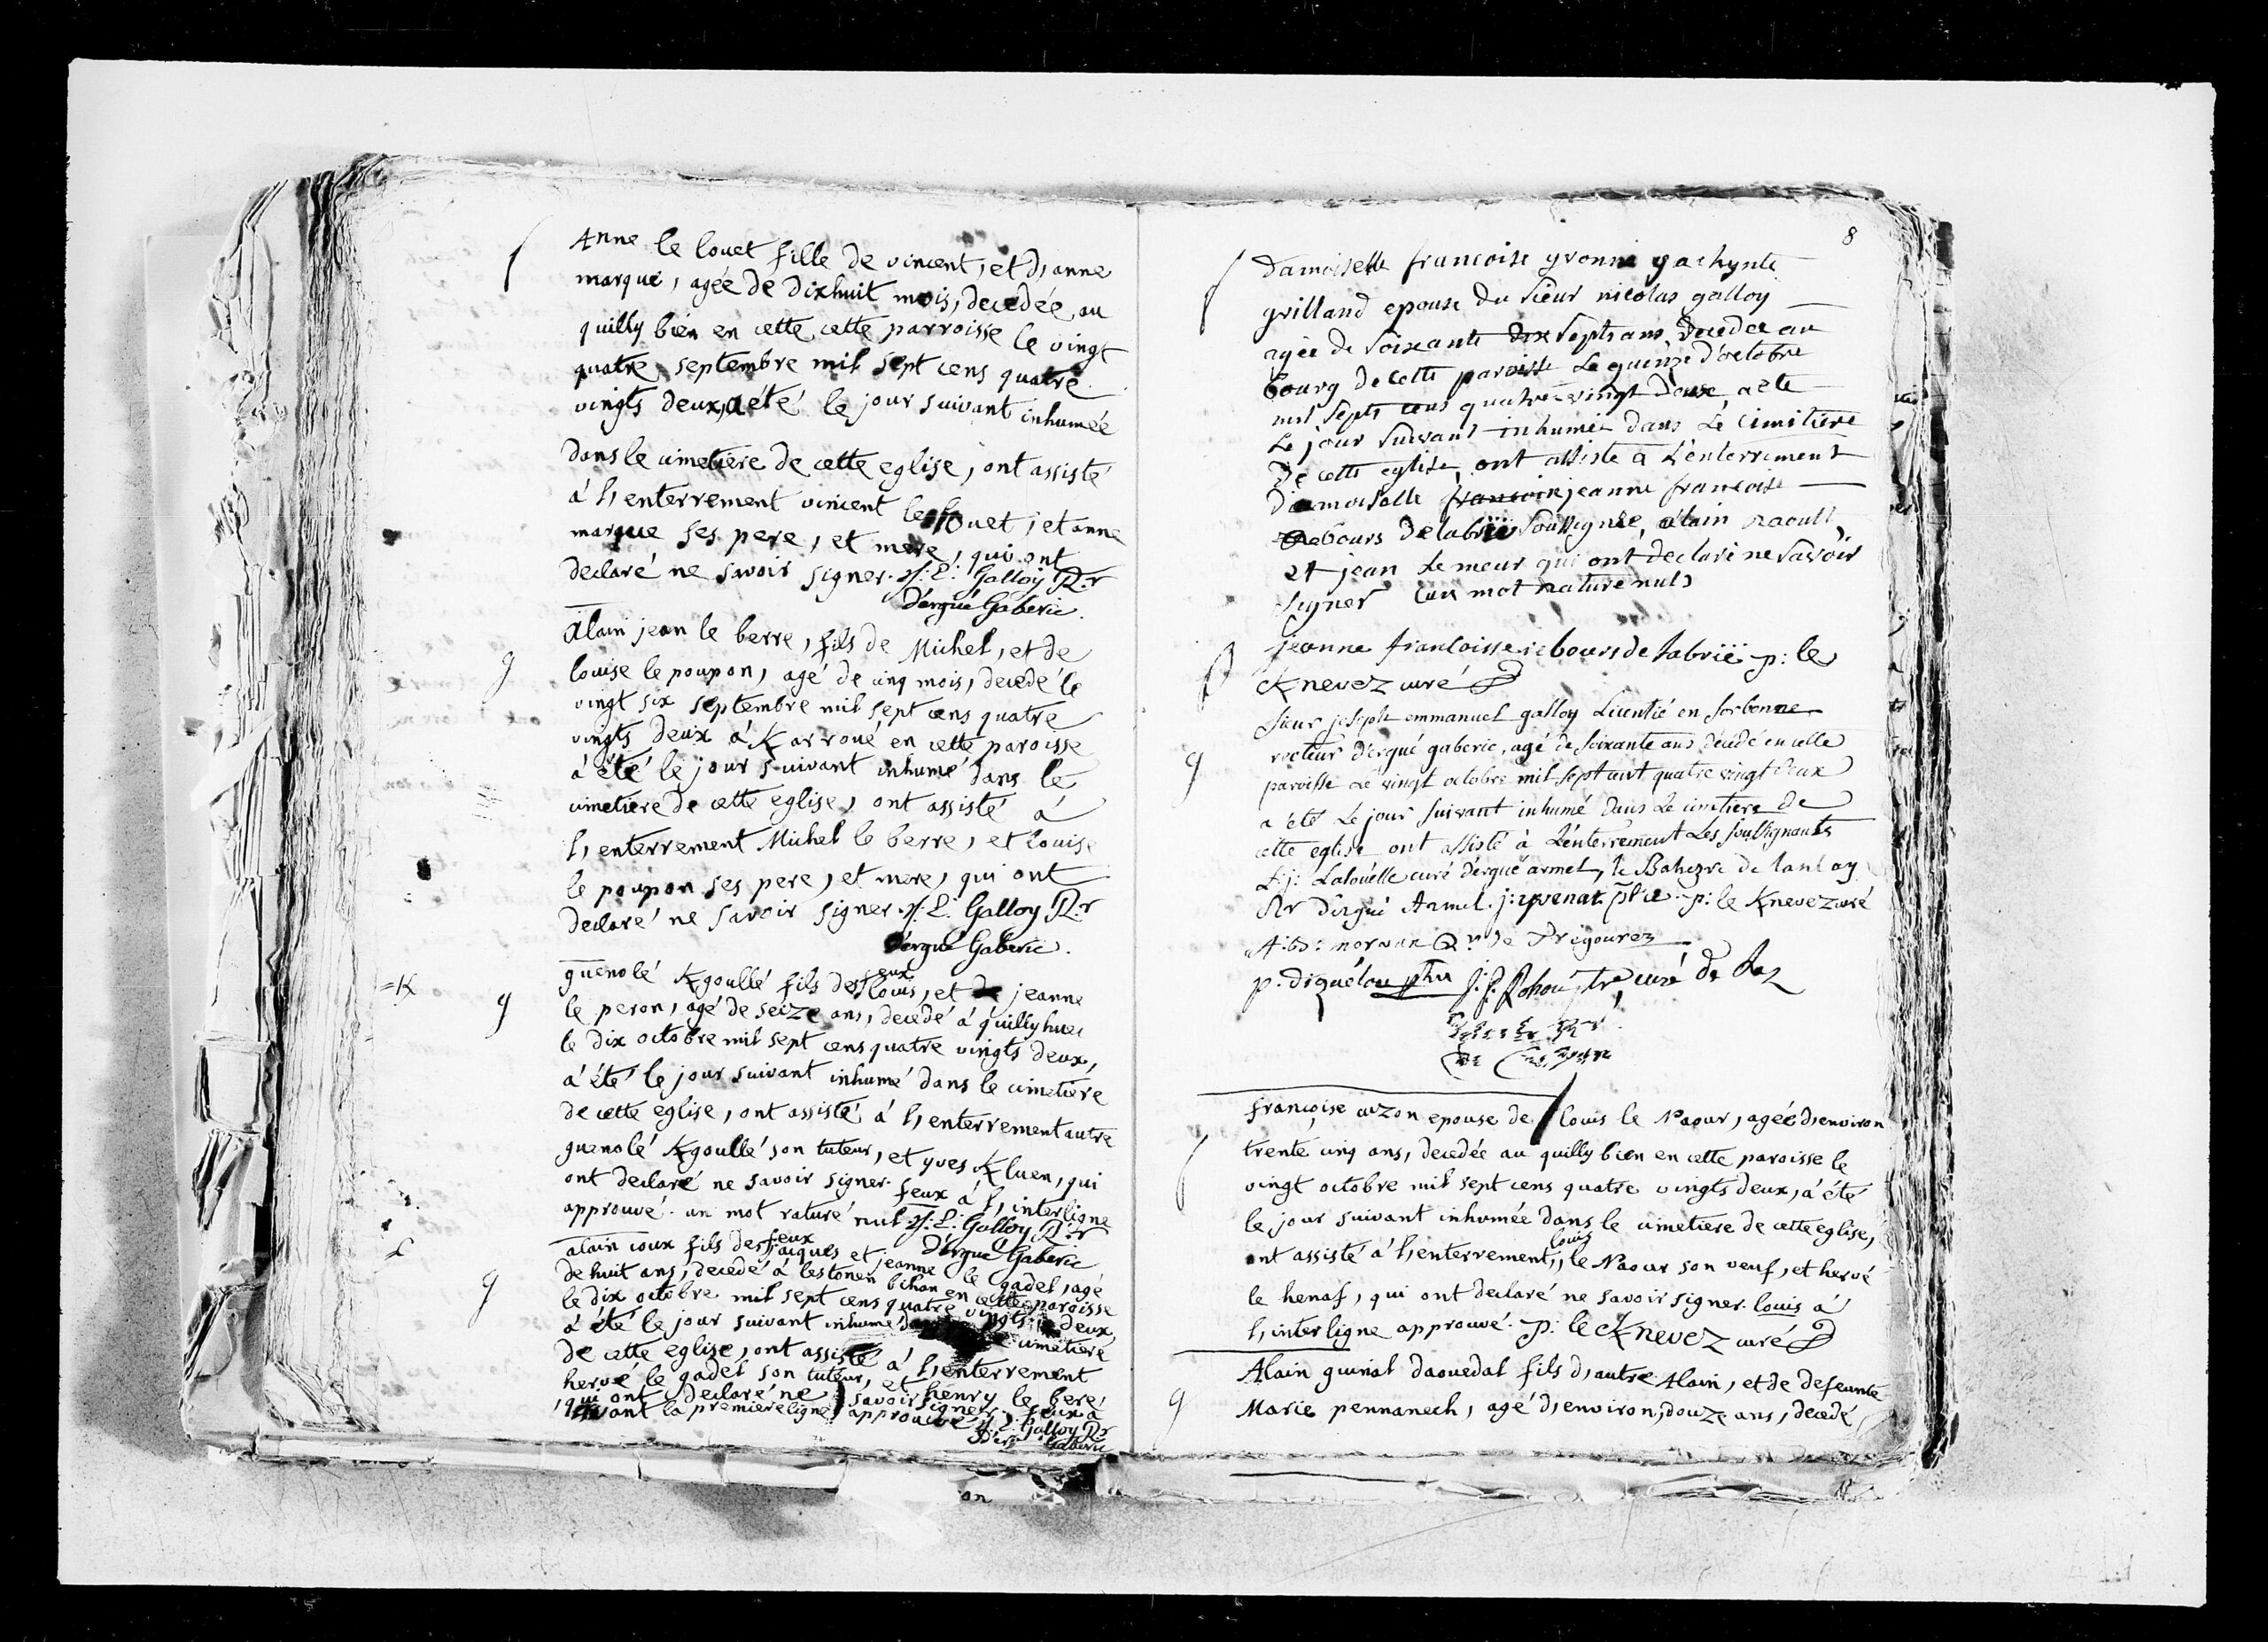 f
Anne le louet fille de vincent, et d, anne
marque, agée de dixhuit mois, decedée au
quilly bien en cette cette parroisse le vingt
quatre septembre mil sept cens quatre
vingts deux, a été le jour suivant inhumée
dans le cimetiere de cette eglise, ont assisté
á l, enterrement vincent le louet, et anne
marque ses pere, et mere, qui ont
declaré ne savoir signer. J: E: Galloy R:r
D'ergué Gaberic.
g
Alain jean le berre, fils de Michel, et de
louise le poupon, agé de cinq mois, decedé le
vingt six septembre mil sept cens quatre
vingts deux á Karroué en cette paroisse
á été le jour suivant inhumé dans le
cimetiere de cette eglise, ont assisté á
l, enterrement Michel le berre, et louise
le poupon ses pere, et mere, qui ont
declaré ne savoir signer. J: E: Galloy R:r
D'ergué Gaberic.
=K
g
guenolé Kgoullé fils des feux louis, et jeanne
le peron, agé de seize ans, decedé á quillyhuec
le dix octobre mil sept cens quatre vingts deux,
á été le jour suivant inhumé dans le cimetiere
de cette eglise, ont assisté á l, enterrement autre
guenolé Kgoullé son tuteur, et yves Kluen, qui
ont declaré ne savoir signer. feux á l, interligne
approuvé. un mot raturé nul J: E: Galloy R:r
D'ergué Gaberic
g
alain coux fils des feux jacques et jeanne le gadel, agé
de huit ans, decedé á lestonen bihan en cette paroisse
le dix octobre mil sept cens quatre vingts deux,
á été le jour suivant inhumé cimetiere
de cette eglise, ont assisté á l, enterrement
hervé le gadel son tuteur, et henry le bere,
qui ont declaré ne savoir signer. feux á
avant la premiere ligne approuvé J: E: Galloy R:r
D'erg Gaberic
8
f
Damoiselle francoise yvonne yachynte
grilland epouse du sieur nicolas galloy
agée de soixante dix septs ans, decedee au
bourg de cette paroisse le quinze d'octobre
mil septs cens quatre-vingt deux, a ete
Le jour suivant inhumée dans Le Cimitiere
De cette eglise, ont assisté a L'enterrement
Damoiselle francoise jeanne francoise
rebours Delabriie soussignée, alain raoult,
et jean Le meur qui ont declaré ne savoir
signer (un mot raturé nul)
jeanne francoisse rebours de labriië p: le
Knevez curé
g
Sieur joseph emmanuel galloy Licentié en sorbonne
recteur d'ergué gaberic, agé de soixante ans decedé en celle
paroisse Le vingt octobre mil sept cent quatre vingt deux
a été Le jour suivant inhumé dans Le cimetiere de
cette eglise ont assisté à L'enterrement Les soussignants
L: j: Lalouëlle curé d'ergué armel, le Bahezre de lanlay
Rr d'ergué Armel. p: le Knevez curé
norvan R:r de Trégourez
p. diquélou ptre J. f. Rohou, ptre curé de Laz
f
françoise cozon epouse de louis le Naour, agée d, environ
trente cinq ans, decedée au quilly bien en cette paroisse le
vingt octobre mil sept cens quatre vingts deux, á été
le jour suivant inhumée dans le cimetiere de cette eglise,
ont assisté á l, enterrement,, louis le Naour son veuf, et hervé
le henaf, qui ont declaré ne savoir signer. louis á
l, interligne approuvé. p: le Knevez curé
g
Alain guinal daouedal fils d, autre Alain, et de defeunte
Marie pennanech, agé d, environ, douze ans, decedé,
on